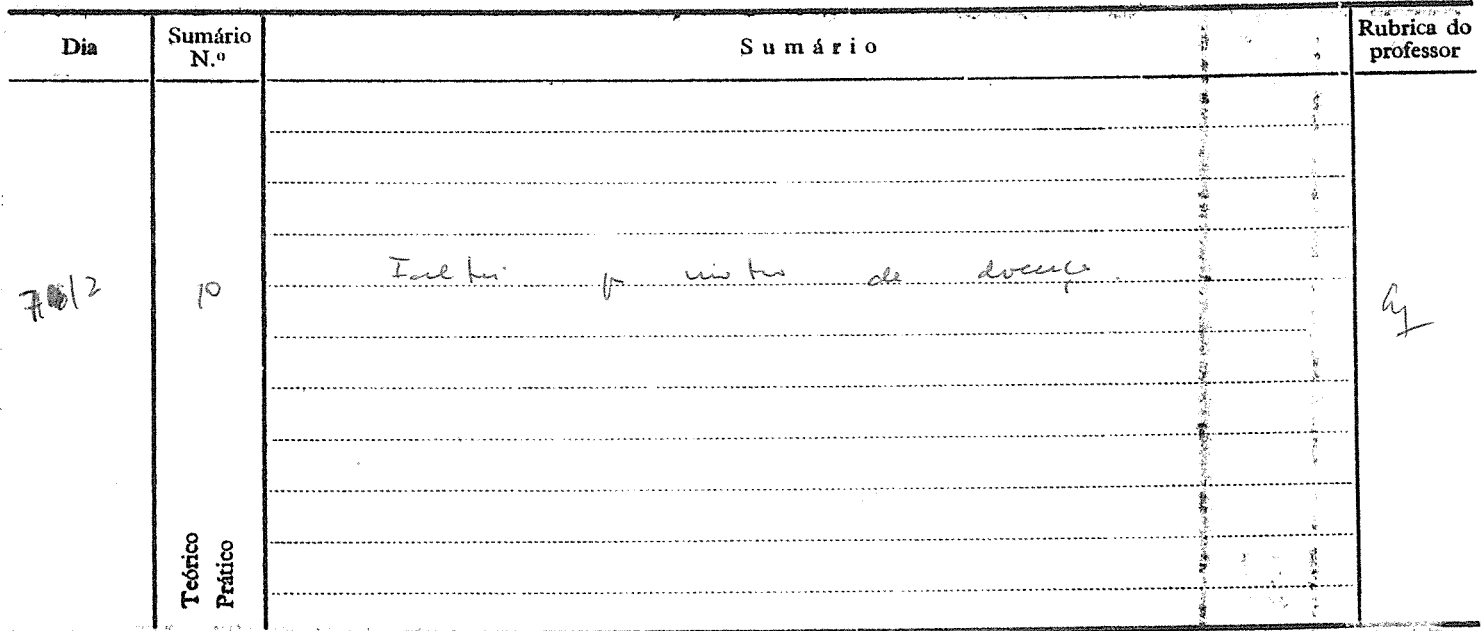 Dia
Sumário N.º
Sumário
Rubrica do professor
10
Faltei por motivo de doença.
Teórico
Prático